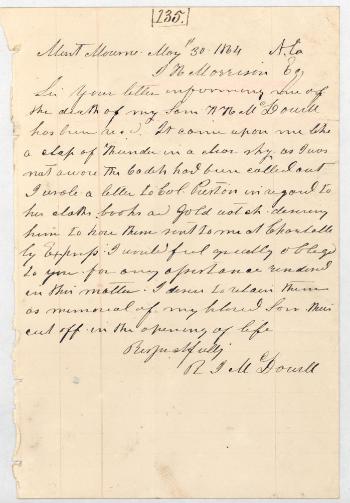 [135.]
Mont Mourne May 30 1864 N. Ca
J H Morrison Esq
Sir Your letter informing me of
the death of my Son W R McDowell
has been recd. It came upon me like
a clap of thunder in a clear sky, as I was
not aware the Cadets had been called out
I wrote a letter to Col Preston in regard to
his cloths, books and Gold watch desiring
him to have them sent to me at Charlotte
by Express. I would feel greatly obliged
to you for any assistance rendered
in this matter. I desire to retain them
as memorial of my beloved Son thus
cut off in the opening of life
Respectfully
R I McDowell